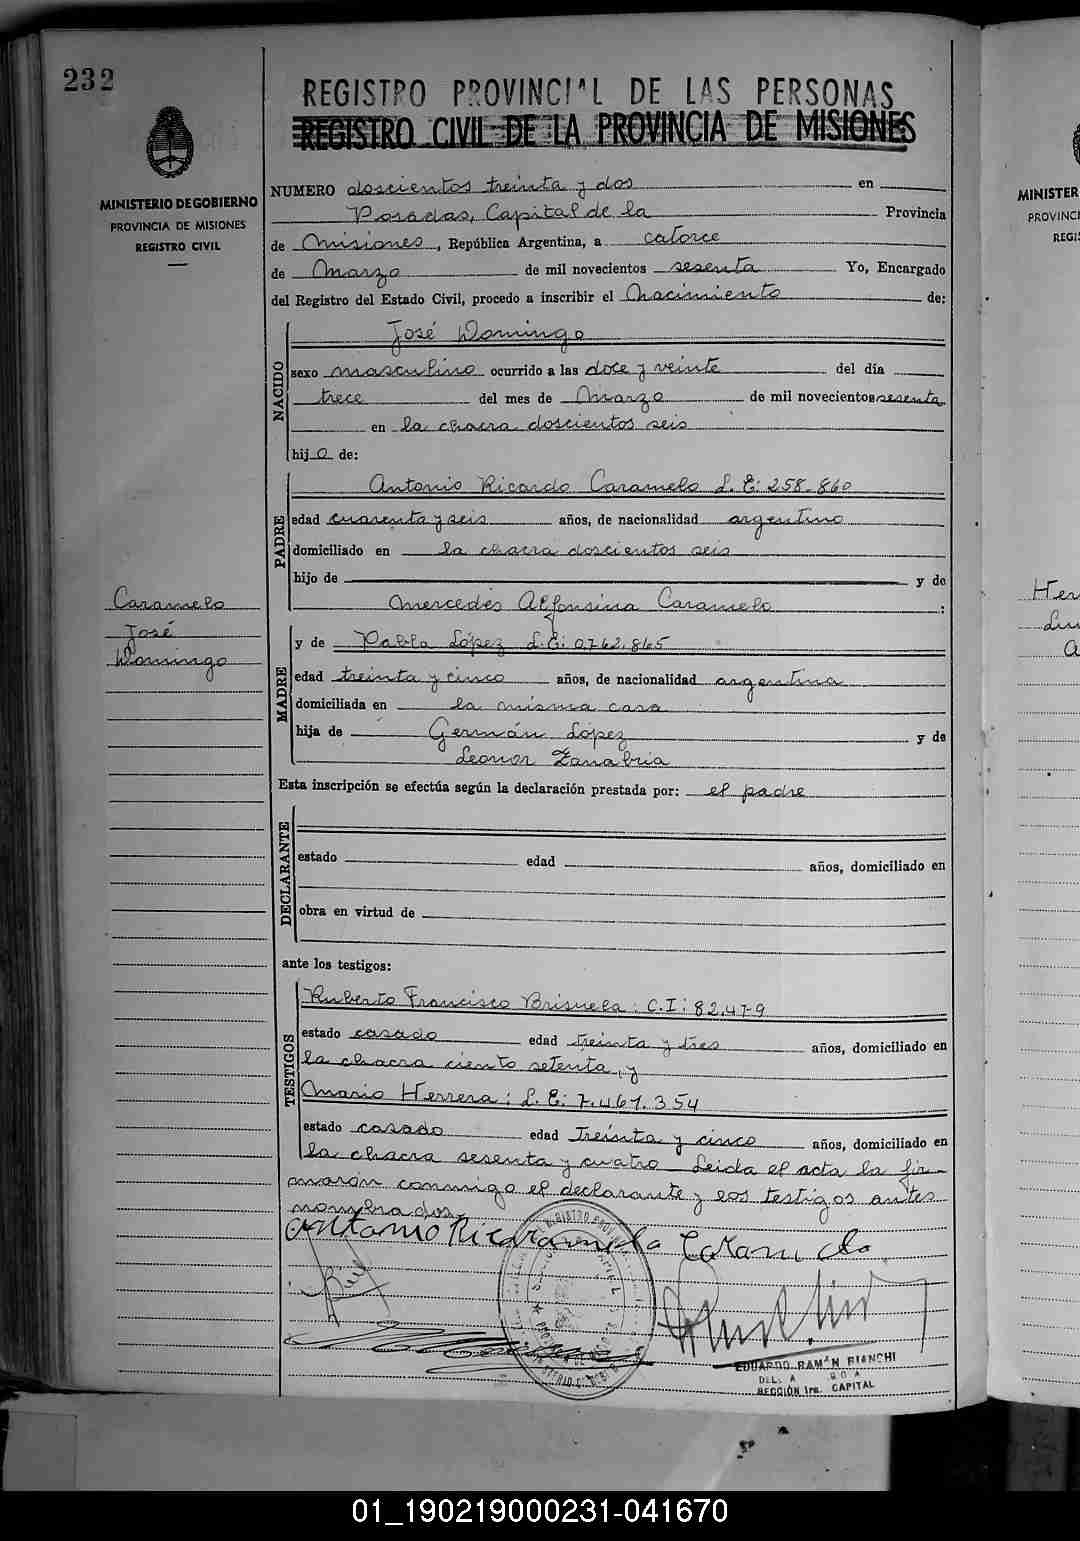 232
REGISTRO PROVINCIAL DE LAS PERSONAS
REGISTRO CIVIL DE LA PROVINCIA DE MISIONES
MINISTERIO DE GOBIERNO
PROVINCIA DE MISIONES
REGISTRO CIVIL
NUMERO doscientos treinta y dos en
Posadas, Capital de la Provincia
de Misiones, República Argentina, a catorce
de Marzo de mil novecientos sesenta Yo, Encargado
del Registro del Estado Civil, procedo a inscribir el Nacimiento de:
NACIDO
José Domingo
sexo masculino ocurrido a las doce y veinte del día
trece del mes de Marzo de mil novecientos sesenta
en la chacra doscientos seis
hijo de:
PADRE
Antonio Ricardo Caramelo L. E: 258.860
edad cuarenta y seis años, de nacionalidad argentino
domiciliado en la chacra doscientos seis
hijo de y de
Mercedes Alfonsina Caramelo :
Caramelo
José
Domingo
MADRE
y de Pabla López L.E: 0.762.865
edad treinta y cinco años, de nacionalidad argentina
domiciliada en la misma casa
hija de Germán López y de
Leonor Zanabria
Esta inscripción se efectúa según la declaración prestada por: el padre
DECLARANTE
estado edad años, domiciliado en
obra en virtud de
ante los testigos:
TESTIGOS
Ruberto Francisco Brisuela: C.I: 82.47-9
estado casado edad treinta y tres años, domiciliado en
la chacra ciento setenta, y
Mario Herrera: L. E: 7.467.354
estado casado edad Treinta y cinco años, domiciliado en
la chacra sesenta y cuatro Leida el acta la fir-
maron conmigo el declarante y los testigos antes
nombrados.
Antonio Ricardo Caramelo
EDUARDO RAMÓN BIANCHI
SECCIÓN 1ra. CAPITAL
MINISTER
PROVINCI
REGI
Her
Lui
A
01_190219000231-041670